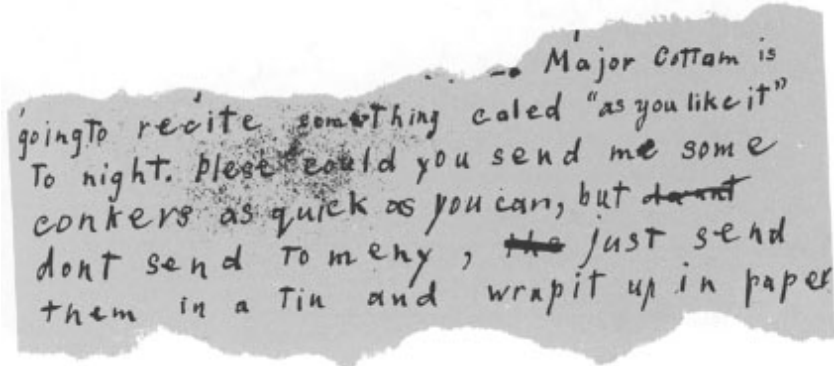 Major Cottam is
going to recite something caled "as you like it"
To night. Plese could you send me some
conkers as quick as you can, but daunt
dont send to meny, the just send
them in a Tin and wrapit up in paper